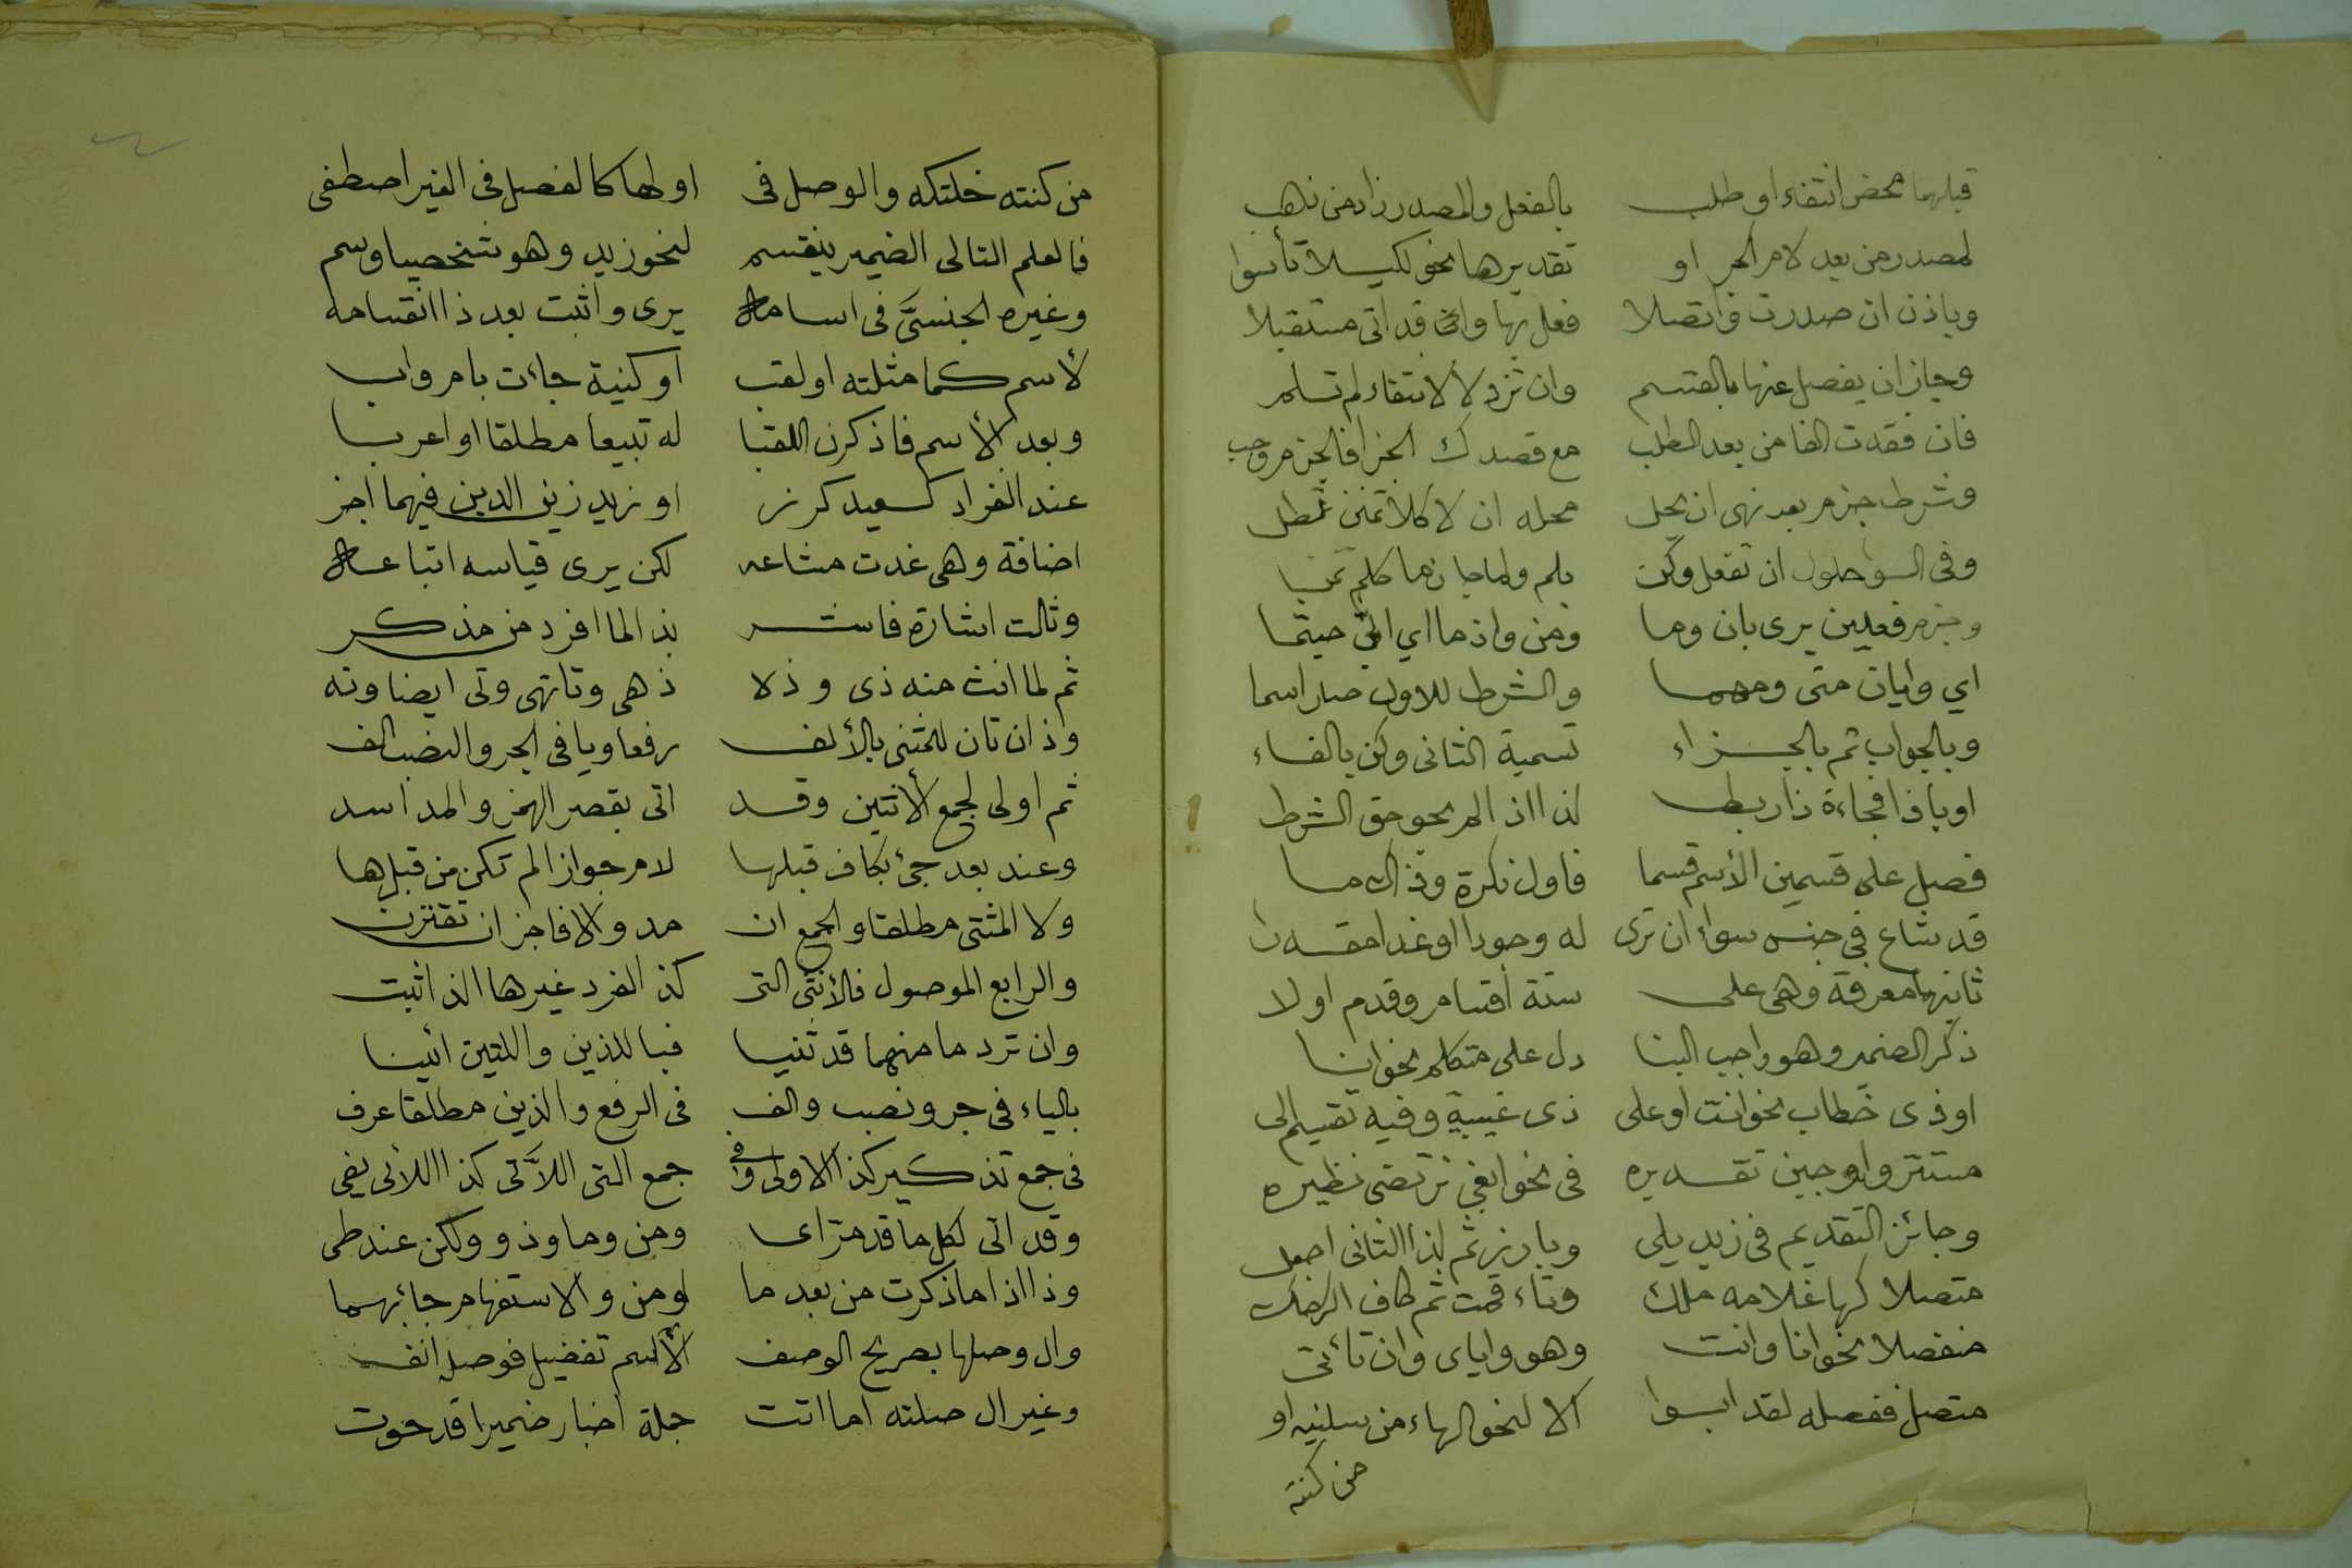 قبلهما محض انتفاء او طلب بالفعل والمصدر زاد من ذهب
لمصدر من بعد لام الجر او تقديرها نحو لكيلا تأسوا
وباذن ان صدرت واتصلا فعل بها وانها قد اتى مستقبلا
وجاز ان يفصل عنها بالقسم وان تزد لا لانتفاء لم تسلم
فان فقدت الفا من بعد الطلب مع قصدك الجزا فالجزم وجب
وشرط جزم بعد نهى ان يحل محله ان لا كلا تمنن تطل
وفى السؤ حلول ان تفعل وكن بلم ولما جازما كلم تمن
وجزم فعلين يرى بان وما ومن واذما اي انى حيثما
اي وايان متى ومهما والشرط للاول صار اسما
وبالجواب ثم بالجزاء تسمية الثانى وكن بالفاء
او باذا فجاءة ذا ربط لذا اذا لم يحو حق الشرط
فصل على قسمين الأسم قسما فاول نكرة وذاك ما
قد شاع فى جنس سواء ان ترى له وجودا او غدا مقدرا
ثانيها معرفة وهى على ستة أقسام وقدم اولا
ذكر الضمير وهو واجب البنا دل على متكلم نحو انا
او ذى خطاب نحو انت او على ذى غيبة وفيه تقسيم الى
مستتر واوجبن تقديره فى نحو ابغى نرتضى نظيره
وجائز التقديم فى زيد يلي وبارز ثم لذا الثانى اجعل
متصلا كها غلامه ملك وتاء قمت ثم كاف اكرمك
منفصلا نحو انا وانت وهو واياى وان تأتى
متصل ففصله لقد ابوا الا لنحو الهاء من سلنيه او
من كنته
من كنته خلتكه والوصل فى اولها كالفصل فى الغير اصطفى
فالعلم التالى الضمير ينقسم لنحو زيد وهو شخصيا وسم
وغيره الجنسىَّ فى اسامة يرى واثبت بعد ذا انقسامه
لأسم كما مثلته او لقب او كنية جاءت بام واب
وبعد الأسم فاذكرن اللقبا له تبيعا مطلقا او اعربا
عند انفراد كسعيد كرز او زيد زين الدين فيهما اجز
اضافة وهى غدت مشاعه لكن يرى قياسه اتباعه
وثالث اشارة فاشر بذا لما افرد من مذكر
ثم لما انث منه ذى وذلا ذهى وتا تهى وتى ايضا وته
وذان تان للمثنى بالألف رفعا ويا فى الجر والنصب الف
ثم اولى لجمع الأنثين وقد اتى بقصر الهمز والمد اسد
وعند بعد جئ بكاف قبلها لام جوازا لم تكن من قبل ها
ولا المثنى مطلقا والجمع ان مد والا فاجز ان تقترن
والرابع الموصول فالأنثى التى كذا لفرد غيرها الذ اثبت
وان ترد ما منهما قد ثنيا فبا للذين واللتين ائينا
بالياء فى جر ونصب والف فى الرفع والذين مطلقا عرف
فى جمع تذكير كذا الاولى وفى جمع التى اللاَّتى كذا اللائى يفى
وقد اتى لكل ما قد مر اى ومن وما وذو ولكن عند طى
وذا اذا ما ذكرت من بعد ما او من والاستفهام جا بهما
وال وصلها بصريح الوصف لا لاسم تفضيل فوصله انف
وغير ال صلته اما اتت جملة اخبار ضميرا قد حوت